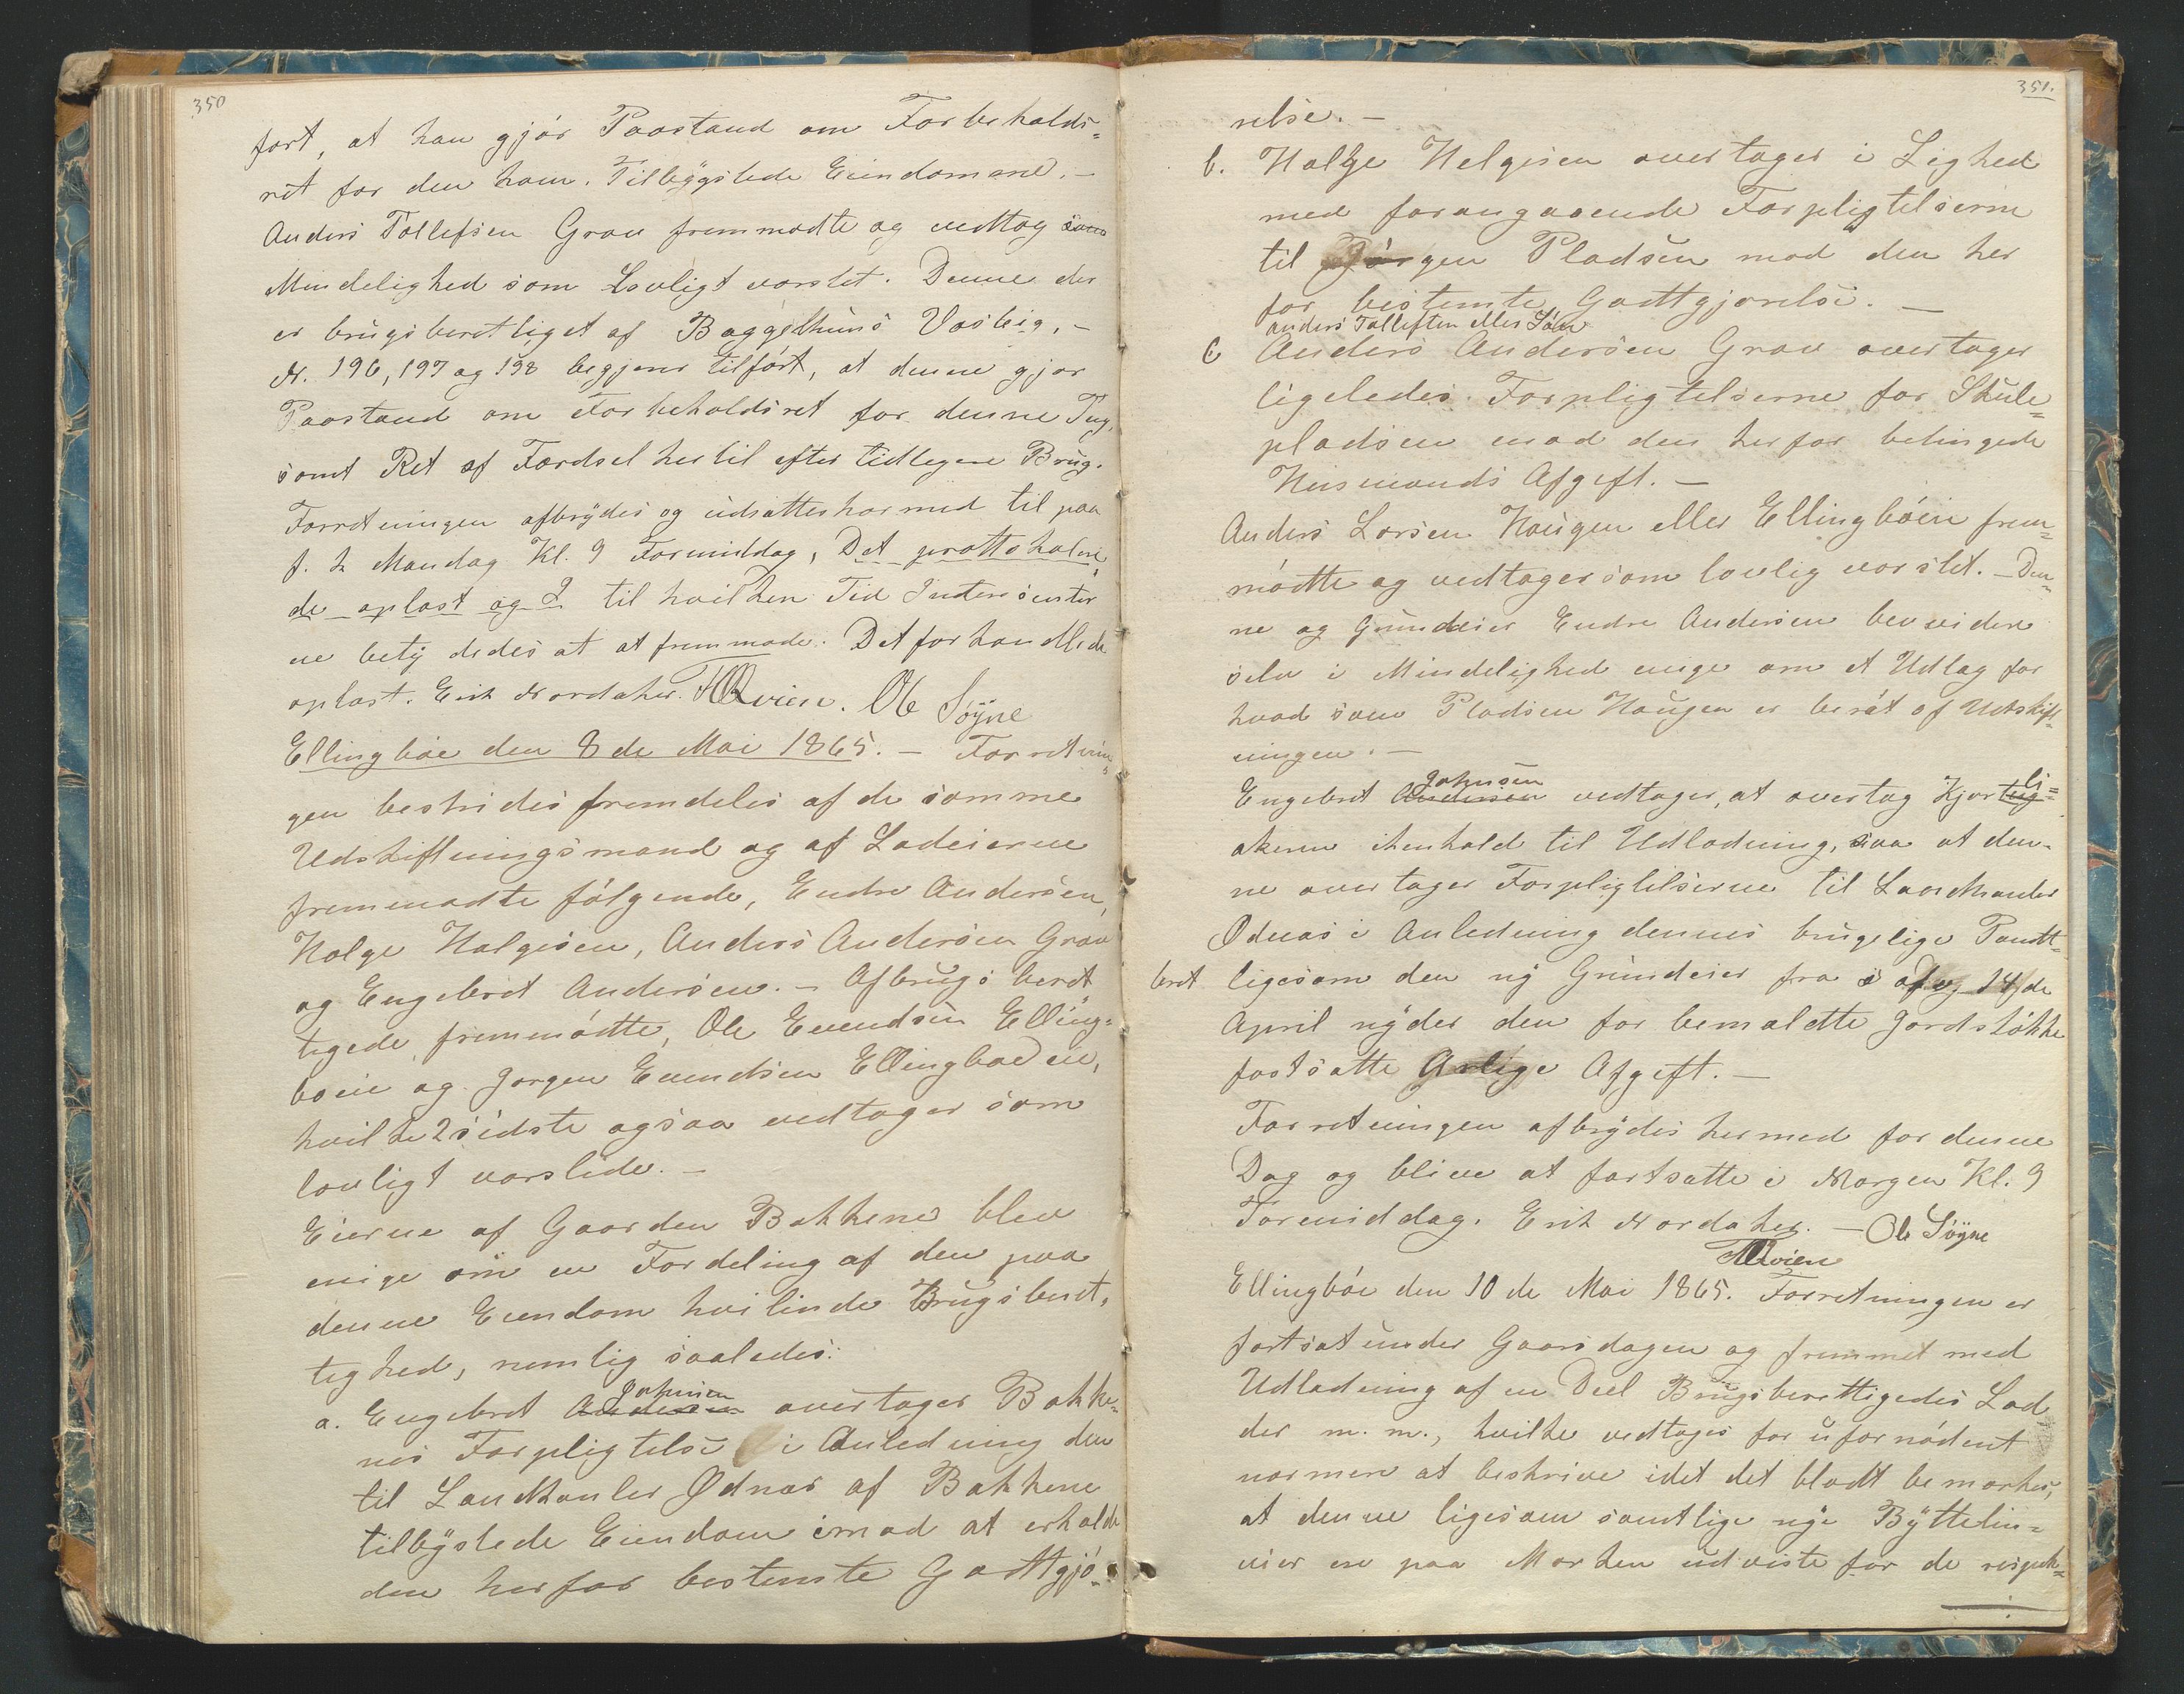 350
ført, at han gjør Paastand om Forbeholds=
ret for den ham Tilbygslede Eiendomme. –
Anders Tollefsen Grav fremmødte og vedtog
Mindelighed som Lovligt varslet. Denne der
er brugsberetliget af Baggethuns Vasteig, –
N. 196, 197 og 198 begjerer tilført, at denne gjør
Paastand om Forbeholdsret for denne
samt Ret af Færdsel hertil efter tidligere Brug.
Forretningen afbrydes og udsættes hermed til paa
f. k Mandag Kl. 9 Formiddag, Det prottokolere,
de oplæst og til hvilken Tid Interesenter
ne betydedes at at fremmøde. Det forhandlede
oplæst. Erik Nordaker. Ole Søÿne
Ellingbøe den 8de Mai 1865. – Forretnin
gen bestrides fremdeles af de samme
Udskiftningsmænd og af Lodeierne
fremmødte følgende, Endre Andersen,
Holge Halgesen, Anders Andersen Grav
og Engebret Andersen. – Af brugsberet
tigede fremmødte, Ole Evendsen Elling=
boeie og Jørgen Evendsen Ellingboeeie,
hvilke 2 sidste ogsaa vedtager som
lovligt varslede. –
Eierne af Gaarden Bakkene blev
enige om en Fordeling af den paa
denne Eiendom hvilende Brugsberet,
tighed, nemlig saaledes:
Johnsen
a. Engebret Andersen overtager Bakke=
nes Forpligtelse i Anledning den
til Landhanler Ødnæs af Bakkene
tilbyslede Eiendom imod at erholde
den herfor bestemte Godtgjø=
351.
relse. –
b. Holge Helgesen overtager i Lighed
med forangaaende Forpligtelserne
til Jørgen Pladsen mod den her
for bestemte Godtgjørelse. –
Anders Tollefsen eller Søn
c Anders Andersen Grav overtager
ligeledes Forpligtelserne for Skule=
pladsen mod den herfor betingede
Husmands Afgift. –
Anders Larsen Haugen eller Ellingbøeie frem=
mødtte og vedtager som lovlig varslet. – Den=
ne og Grundeier Endre Andersen bevidere
selv i Mindelighed enige om et Udlæg for
hvad som Pladsen Haugen er berøt af Utskift=
ningen. –
Johnsen li=
Engebret Andersen vedtager, at overtag Kjortug
akeren ihenhold til Udlodning, saa at den=
ne overtager Forpligtelserne til Landhandler
Ødnæs i Anledning dennes brugelige
beret ligesom den ny Grundeier fra s 14de
April nyder den for bemældtte Jordstøkke
fastsatte Aarlige Afgift. –
Forretningen afbrydes hermed for denne
Dag og blive at fortsætte i Morgen Kl. 9
Formiddag. Erik Nordaker. – Ole Søÿne
Ellingbøe den 10de Mai 1865. Forretningen er
fortsat under Gaarsdagen og fremmet med
Udlodning af en Deel Brugsberettigedes Lod
der m. m., hvilke vedtages for ufornødent
nærmere at beskrive idet det blodt bemærkes,
at denne ligesom samtlige nye Byttelin=
nier ere paa Marken udviste for de respek=